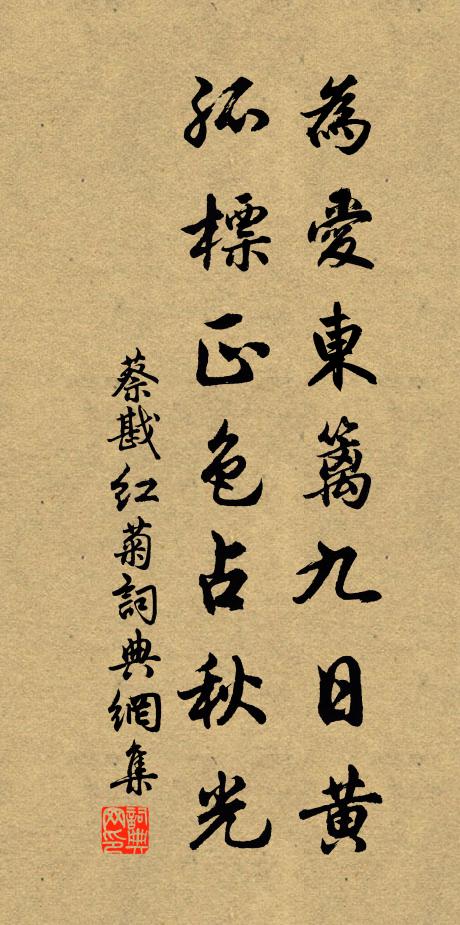 為愛東籬九日黃
孤標正色占秋光
蔡戡紅菊詞典網集
詞典網印